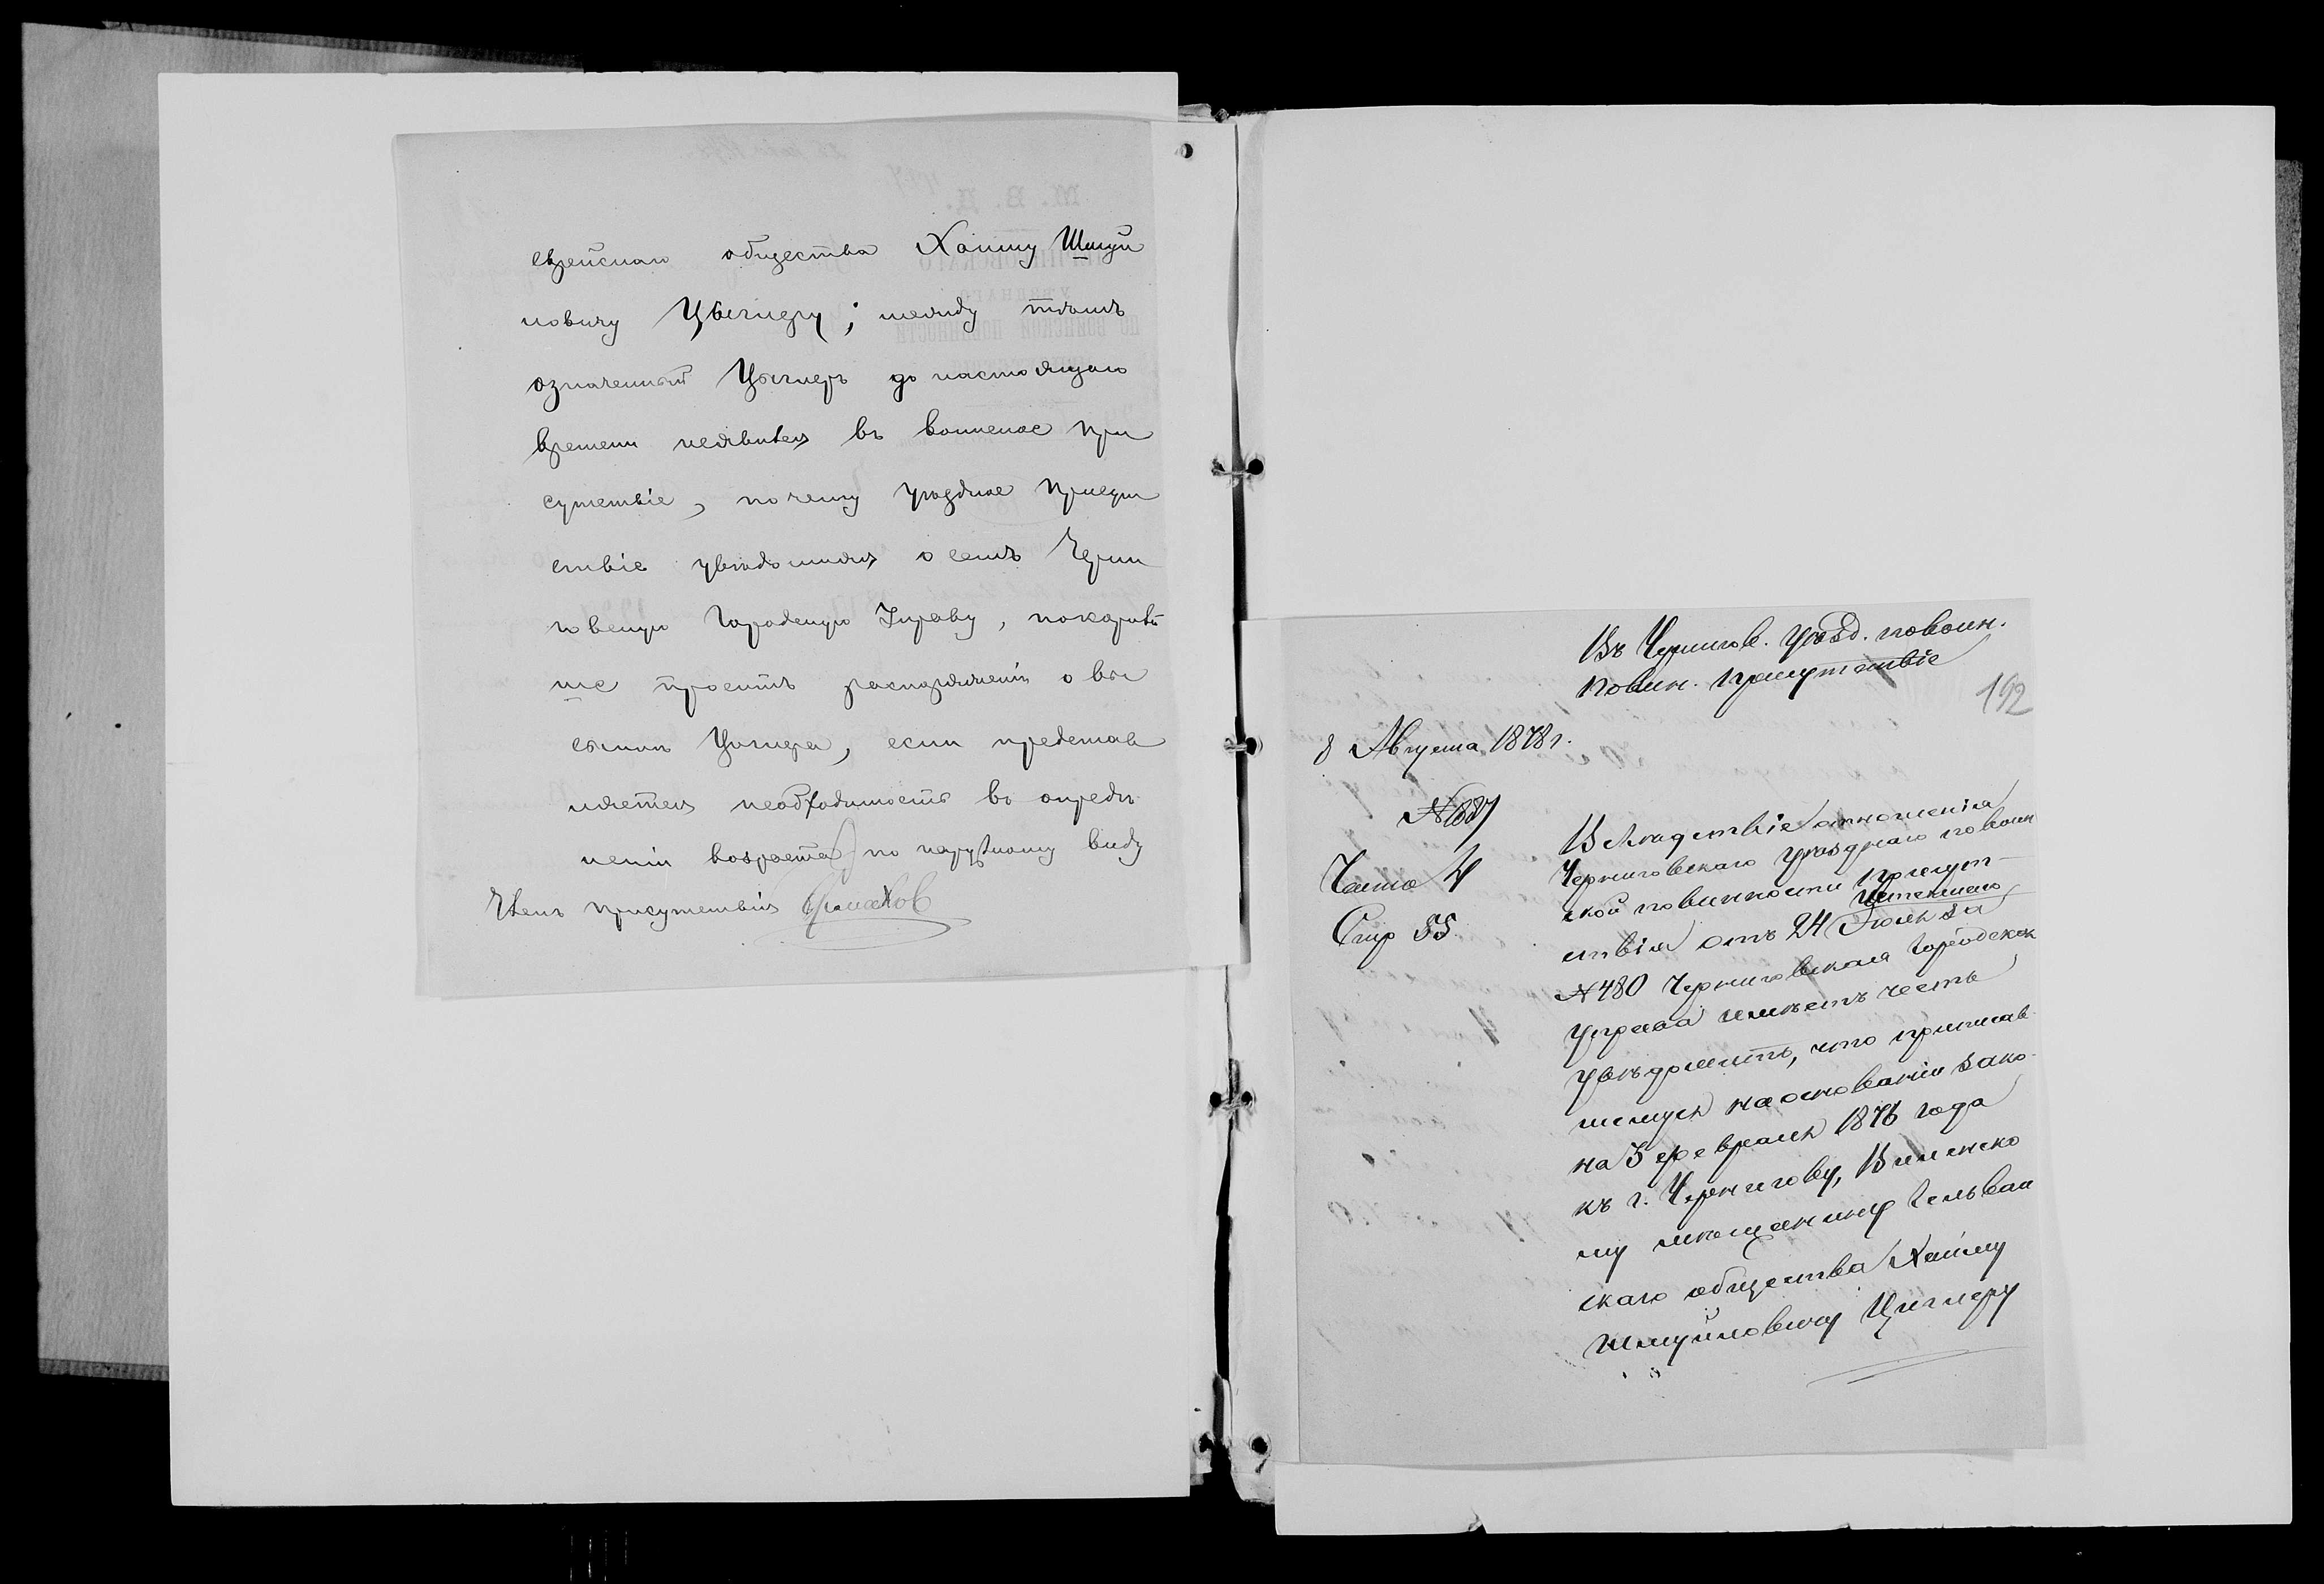 еврейскаго общества Хаиму Шмуй
ловичу Цыгнеру; между тѣмъ
означенный Цыгнеръ до настоящаго
времени неявился въ воинское при
сутствіе, почему уѣздное присут
ствіе увѣдомляя о семъ Черни
говскую Городскую Управу, покорнѣй
ше проситъ распоряженія о вы
сылкѣ Цыгнера, если представ
ляется необходимость въ опредѣ
леніи возраста по наружному виду
Членъ присутствія
Въ Чернигов. уѣзд. по воин.
повин. присутствіе
192
8 Августа 1878 г.
Часто 4
Стр 55
Вслѣдствіе отношенія
Черниговскаго уѣзднаго по воин
ской повинности присут-
истекшаго
ствія отъ 24 Іюля за
№ 480 Черниговская Городская
Управа имѣетъ честь
увѣдомить, что приписав
шемуся на основаніи зако-
на 3 февраля 1876 года
къ г. Чернигову, Виленско
му мѣщанину Гельван
скаго общества Хаиму
Шмуйловичу Цигнеру